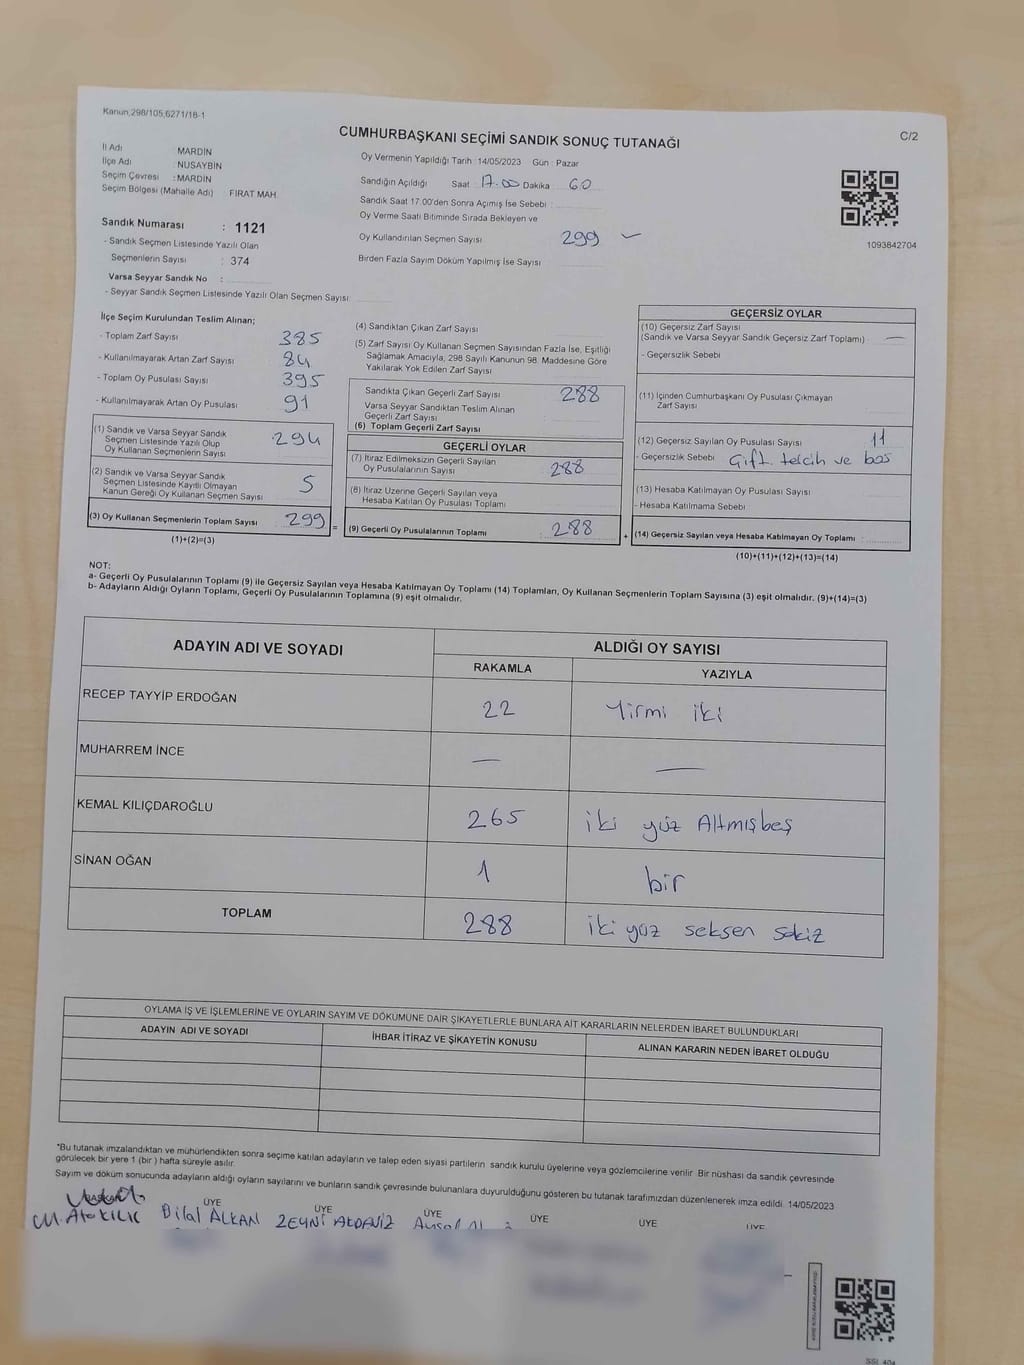 Kanun,298/105,6271/18-1
CUMHURBAŞKANI SEÇİMİ SANDIK SONUÇ TUTANAĞI
C/2
İl Adı MARDİN
İlçe Adı NUSAYBİN
Seçim Çevresi : MARDİN
Seçim Bölgesi (Mahalle Adı) FIRAT MAH.
Oy Vermenin Yapıldığı Tarih : 14/05/2023 Gün : Pazar
Sandığın Açıldığı Saat 17.00 Dakika 60
Sandık Saat 17.00'den Sonra Açımış İse Sebebi :
Oy Verme Saati Bitiminde Sırada Bekleyen ve
Oy Kullandırılan Seçmen Sayısı 299
Birden Fazla Sayım Döküm Yapılmış İse Sayısı
1093842704
Sandık Numarası : 1121
- Sandık Seçmen Listesinde Yazılı Olan
Seçmenlerin Sayısı : 374
Varsa Seyyar Sandık No :
- Seyyar Sandık Seçmen Listesinde Yazılı Olan Seçmen Sayısı:
İlçe Seçim Kurulundan Teslim Alınan;
- Toplam Zarf Sayısı 385
- Kullanılmayarak Artan Zarf Sayısı 84
- Toplam Oy Pusulası Sayısı 395
- Kullanılmayarak Artan Oy Pusulası 91
(1) Sandık ve Varsa Seyyar Sandık
Seçmen Listesinde Yazılı Olup
Oy Kullanan Seçmenlerin Sayısı 294
(2) Sandık ve Varsa Seyyar Sandık
Seçmen Listesinde Kayıtlı Olmayan
Kanun Gereği Oy Kullanan Seçmen Sayısı 5
(3) Oy Kullanan Seçmenlerin Toplam Sayısı 299 =
(1)+(2)=(3)
(4) Sandıktan Çıkan Zarf Sayısı
(5) Zarf Sayısı Oy Kullanan Seçmen Sayısından Fazla İse, Eşitliği
Sağlamak Amacıyla, 298 Sayılı Kanunun 98. Maddesine Göre
Yakılarak Yok Edilen Zarf Sayısı
Sandıkta Çıkan Geçerli Zarf Sayısı 288
Varsa Seyyar Sandıktan Teslim Alınan
Geçerli Zarf Sayısı
(6) Toplam Geçerli Zarf Sayısı
GEÇERLİ OYLAR
(7) İtiraz Edilmeksizin Geçerli Sayılan
Oy Pusulalarının Sayısı 288
(8) İtiraz Üzerine Geçerli Sayılan veya
Hesaba Katılan Oy Pusulası Toplamı
(9) Geçerli Oy Pusulalarının Toplamı 288 +
GEÇERSİZ OYLAR
(10) Geçersiz Zarf Sayısı
(Sandık ve Varsa Seyyar Sandık Geçersiz Zarf Toplamı) —
- Geçersizlik Sebebi
(11) İçinden Cumhurbaşkanı Oy Pusulası Çıkmayan
Zarf Sayısı
(12) Geçersiz Sayılan Oy Pusulası Sayısı 11
- Geçersizlik Sebebi Çift. tercih ve boş
(13) Hesaba Katılmayan Oy Pusulası Sayısı
- Hesaba Katılmama Sebebi
(14) Geçersiz Sayılan veya Hesaba Katılmayan Oy Toplamı :
(10)+(11)+(12)+(13)=(14)
NOT:
a- Geçerli Oy Pusulalarının Toplamı (9) ile Geçersiz Sayılan veya Hesaba Katılmayan Oy Toplamı (14) Toplamları, Oy Kullanan Seçmenlerin Toplam Sayısına (3) eşit olmalıdır. (9)+(14)=(3)
b- Adayların Aldığı Oyların Toplamı, Geçerli Oy Pusulalarının Toplamına (9) eşit olmalıdır.
ADAYIN ADI VE SOYADI ALDIĞI OY SAYISI
RAKAMLA YAZIYLA
RECEP TAYYİP ERDOĞAN 22 Yirmi iki
MUHARREM İNCE — —
KEMAL KILIÇDAROĞLU 265 iki yüz Altmışbeş
SİNAN OĞAN 1 bir
TOPLAM 288 iki yüz seksen sekiz
OYLAMA İŞ VE İŞLEMLERİNE VE OYLARIN SAYIM VE DÖKÜMÜNE DAİR ŞİKAYETLERLE BUNLARA AİT KARARLARIN NELERDEN İBARET BULUNDUKLARI
ADAYIN ADI VE SOYADI İHBAR İTİRAZ VE ŞİKAYETİN KONUSU ALINAN KARARIN NEDEN İBARET OLDUĞU
*Bu tutanak imzalandıktan ve mühürlendikten sonra seçime katılan adayların ve talep eden siyasi partilerin sandık kurulu üyelerine veya gözlemcilerine verilir. Bir nüshası da sandık çevresinde
görülecek bir yere 1 (bir) hafta süreyle asılır.
Sayım ve döküm sonucunda adayların aldığı oyların sayılarını ve bunların sandık çevresinde bulunanlara duyurulduğunu gösteren bu tutanak tarafımızdan düzenlenerek imza edildi. 14/05/2023
BAŞKAN ÜYE ÜYE ÜYE ÜYE ÜYE ÜYE
M. Ata KILIC Bilal ALKAN ZEYNİ AKDENİZ Aysel